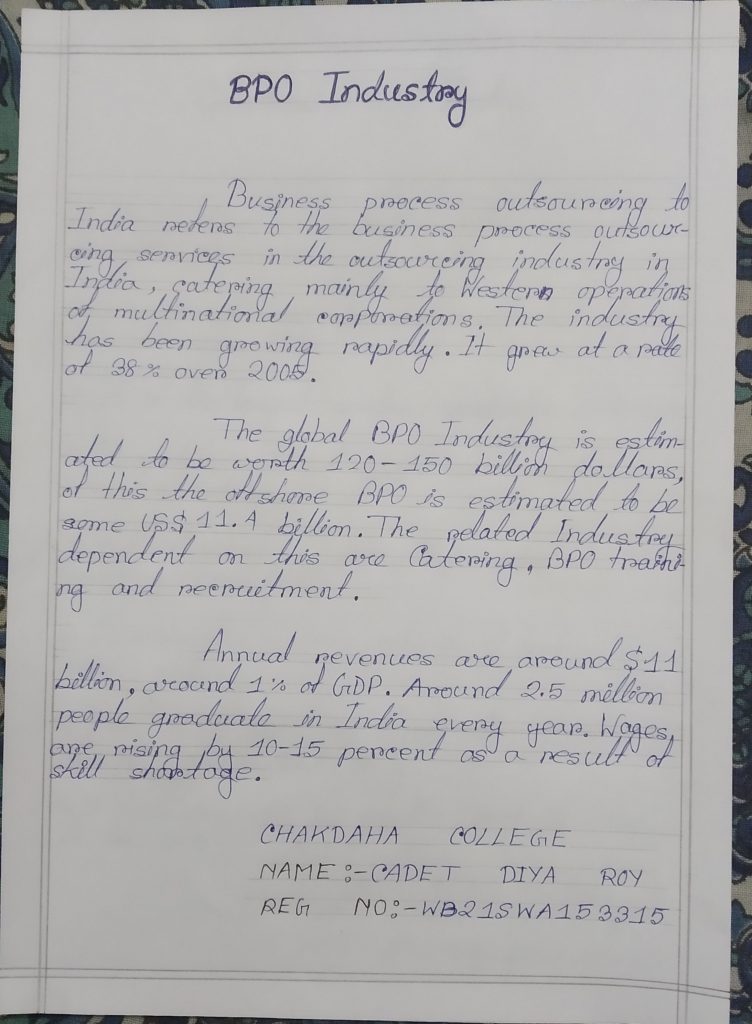 BPO Industry
Business process outsourcing to
India refers to the business process outsour-
cing services in the outsourcing industry in
India, catering mainly to Western operations
of multinational corporations. The industry
has been growing rapidly. It grew at a rate
of 38% over 2005.
The global BPO Industry is estim-
ated to be worth 120-150 billion dollars,
of this the offshore BPO is estimated to be
some US$ 11.4 billion. The related Industry
dependent on this are Catering, BPO traini-
ng and recruitment.
Annual revenues are around $11
billion, around 1% of GDP. Around 2.5 million
people graduate in India every year. Wages
are rising by 10-15 percent as a result of
skill shortage.
CHAKDAHA COLLEGE
NAME :- CADET DIYA ROY
REG NO:- WB21SWA153315